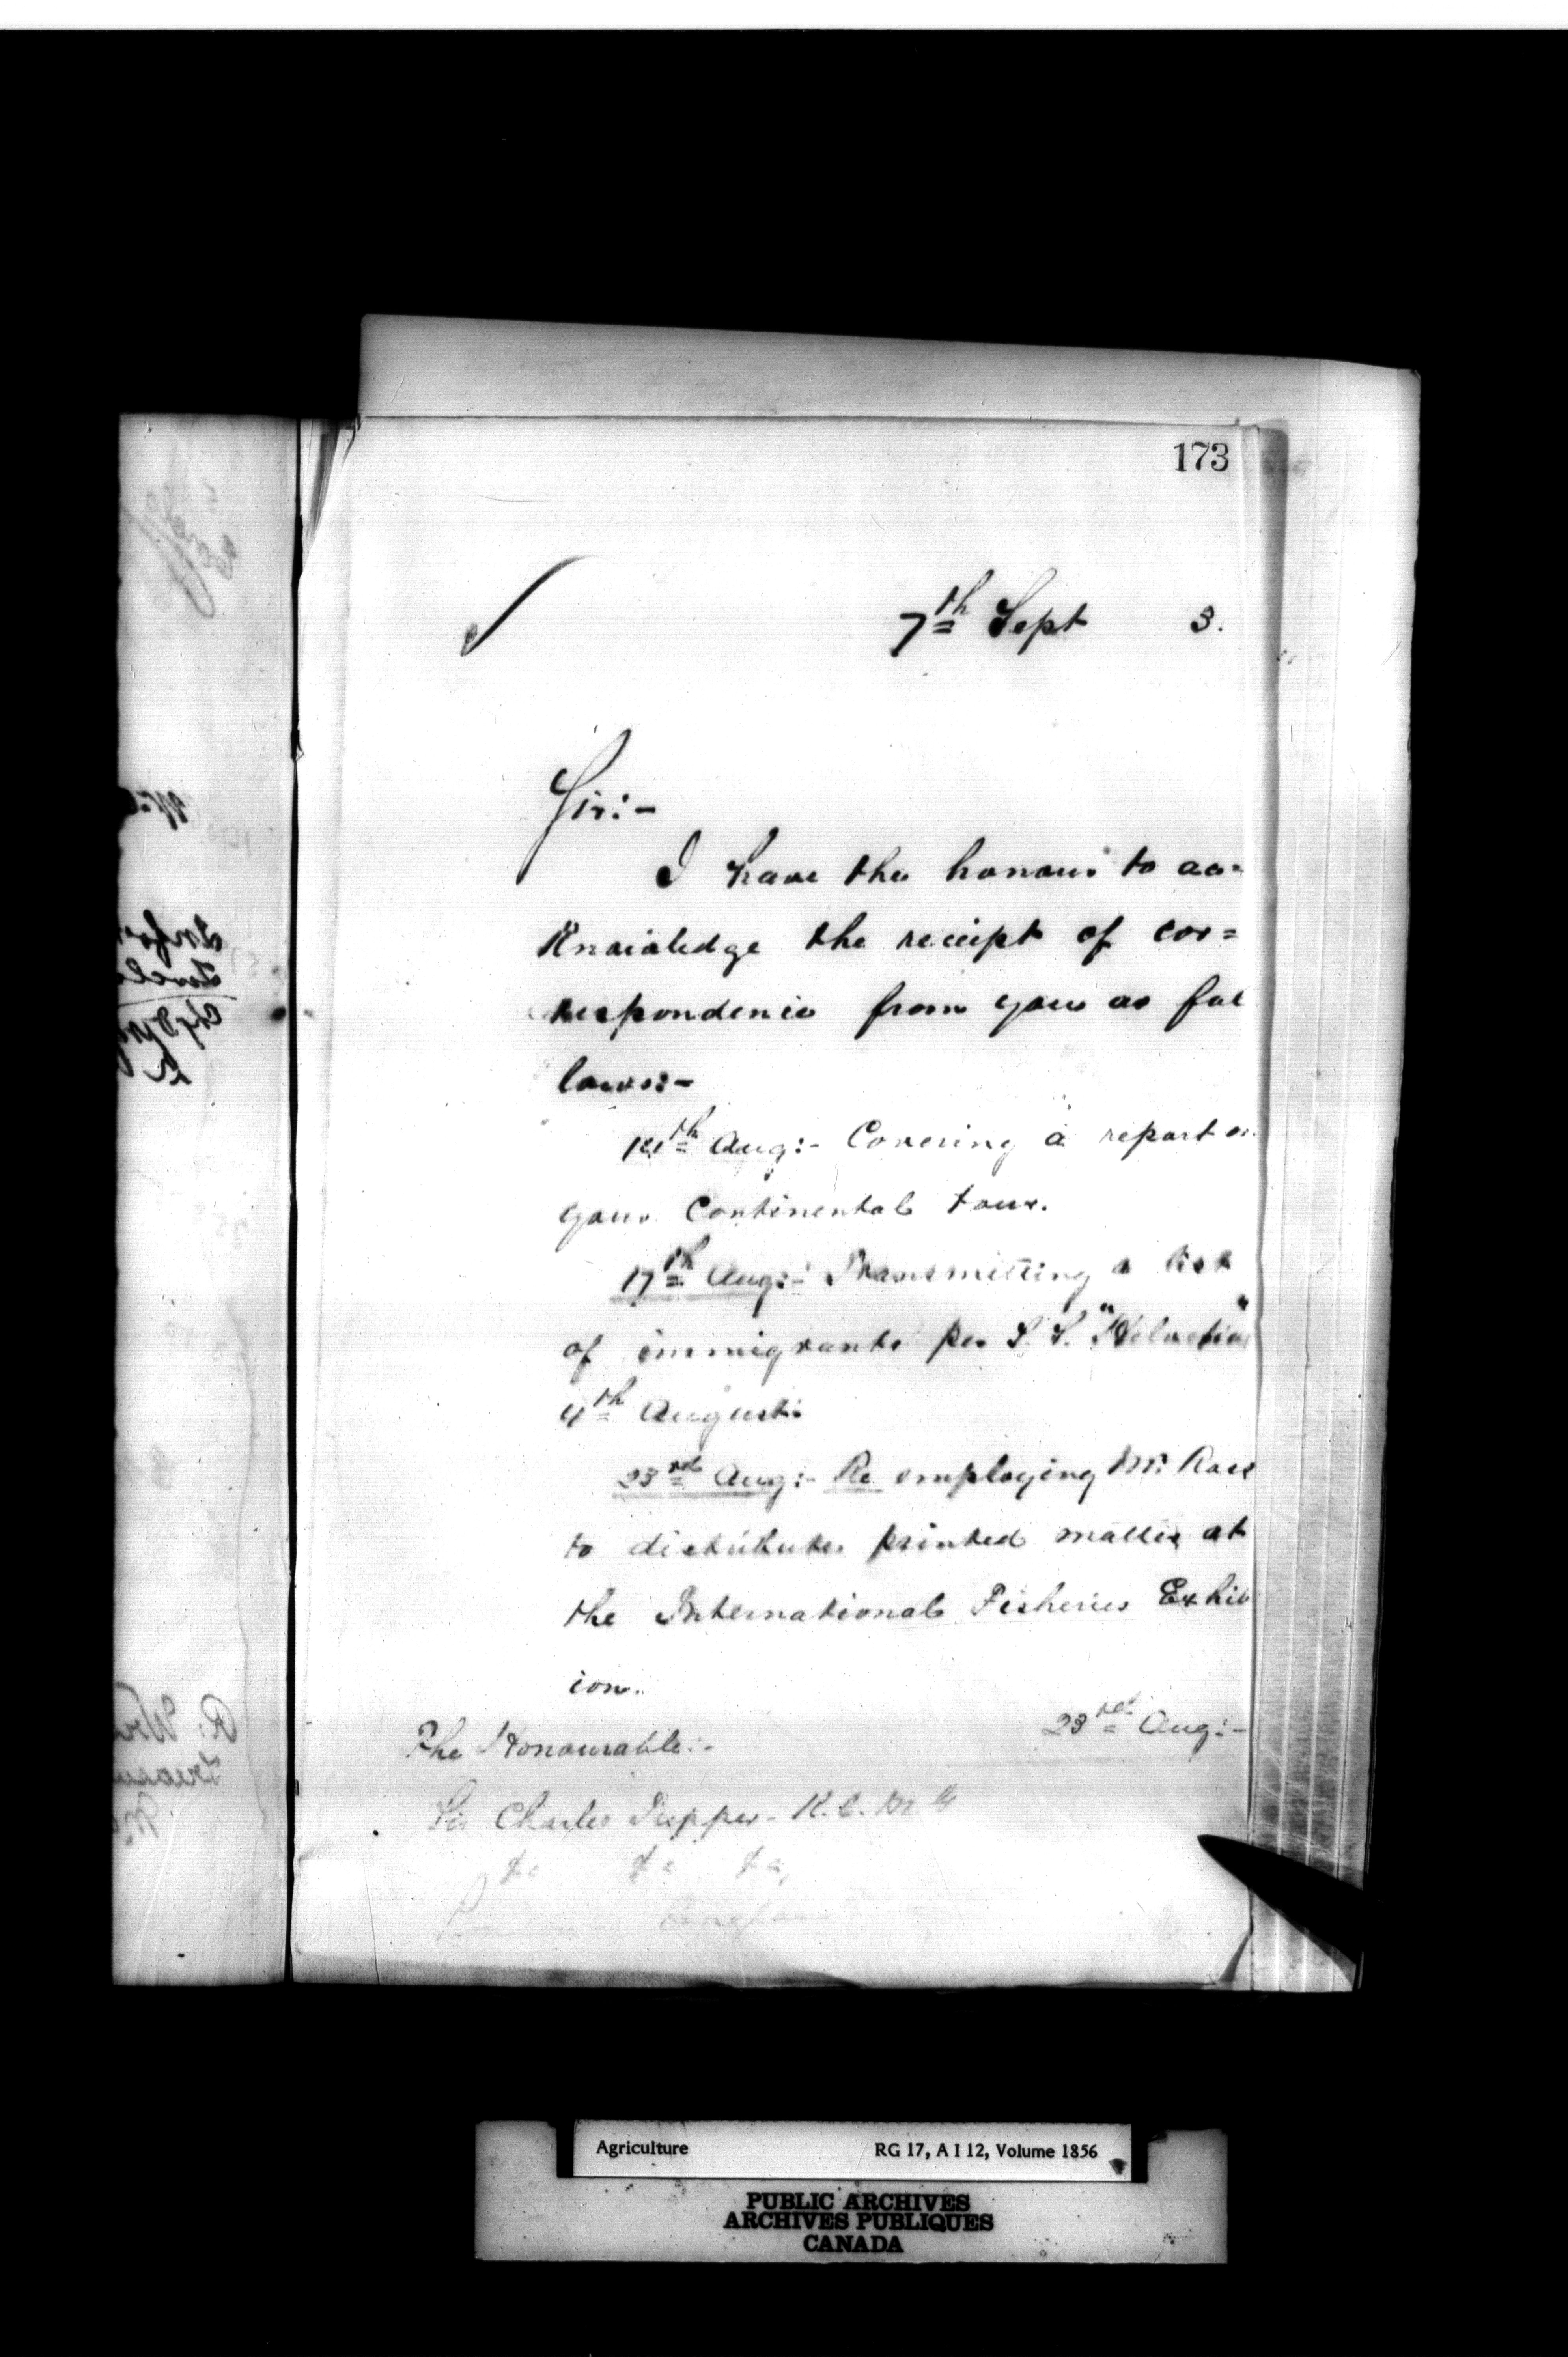 173
7th Sept 3.
Sir:-
I have the honour to ac=
knowledge the receipt of cor=
respondence from you as fol
lows:-
14th Aug:- Covering a report on
your Continental tour.
17th Aug:- Transmitting a list
of immigrants per S. S. "Helvetia"
4th August.
23rd Aug:- Re employing Mr. Ross
to distribute printed matter at
the International Fisheries Exhib
ion.
23rd Aug:-
The Honourable:-
Sir Charles Tupper - K.C.M.G
&c &c &c,
Agriculture RG 17, A I 12, Volume 1856
PUBLIC ARCHIVES
ARCHIVES PUBLIQUES
CANADA